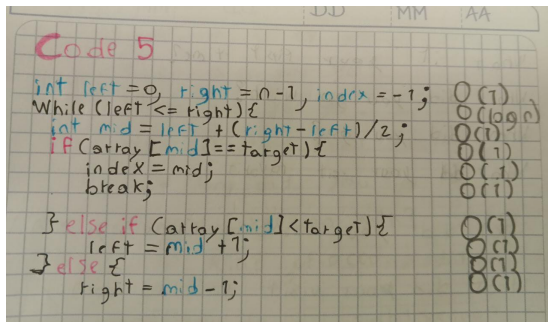 DD MM AA
Code 5
int left = 0, right = n-1, index = -1; O(1)
While (left <= right) { O(log n)
int mid = left + (right - left) / 2; O(1)
if (array [mid] == target) { O(1)
index = mid; O(1)
break; O(1)
} else if (array [mid] < target) { O(1)
left = mid + 1; O(1)
} else { O(1)
right = mid - 1; O(1)